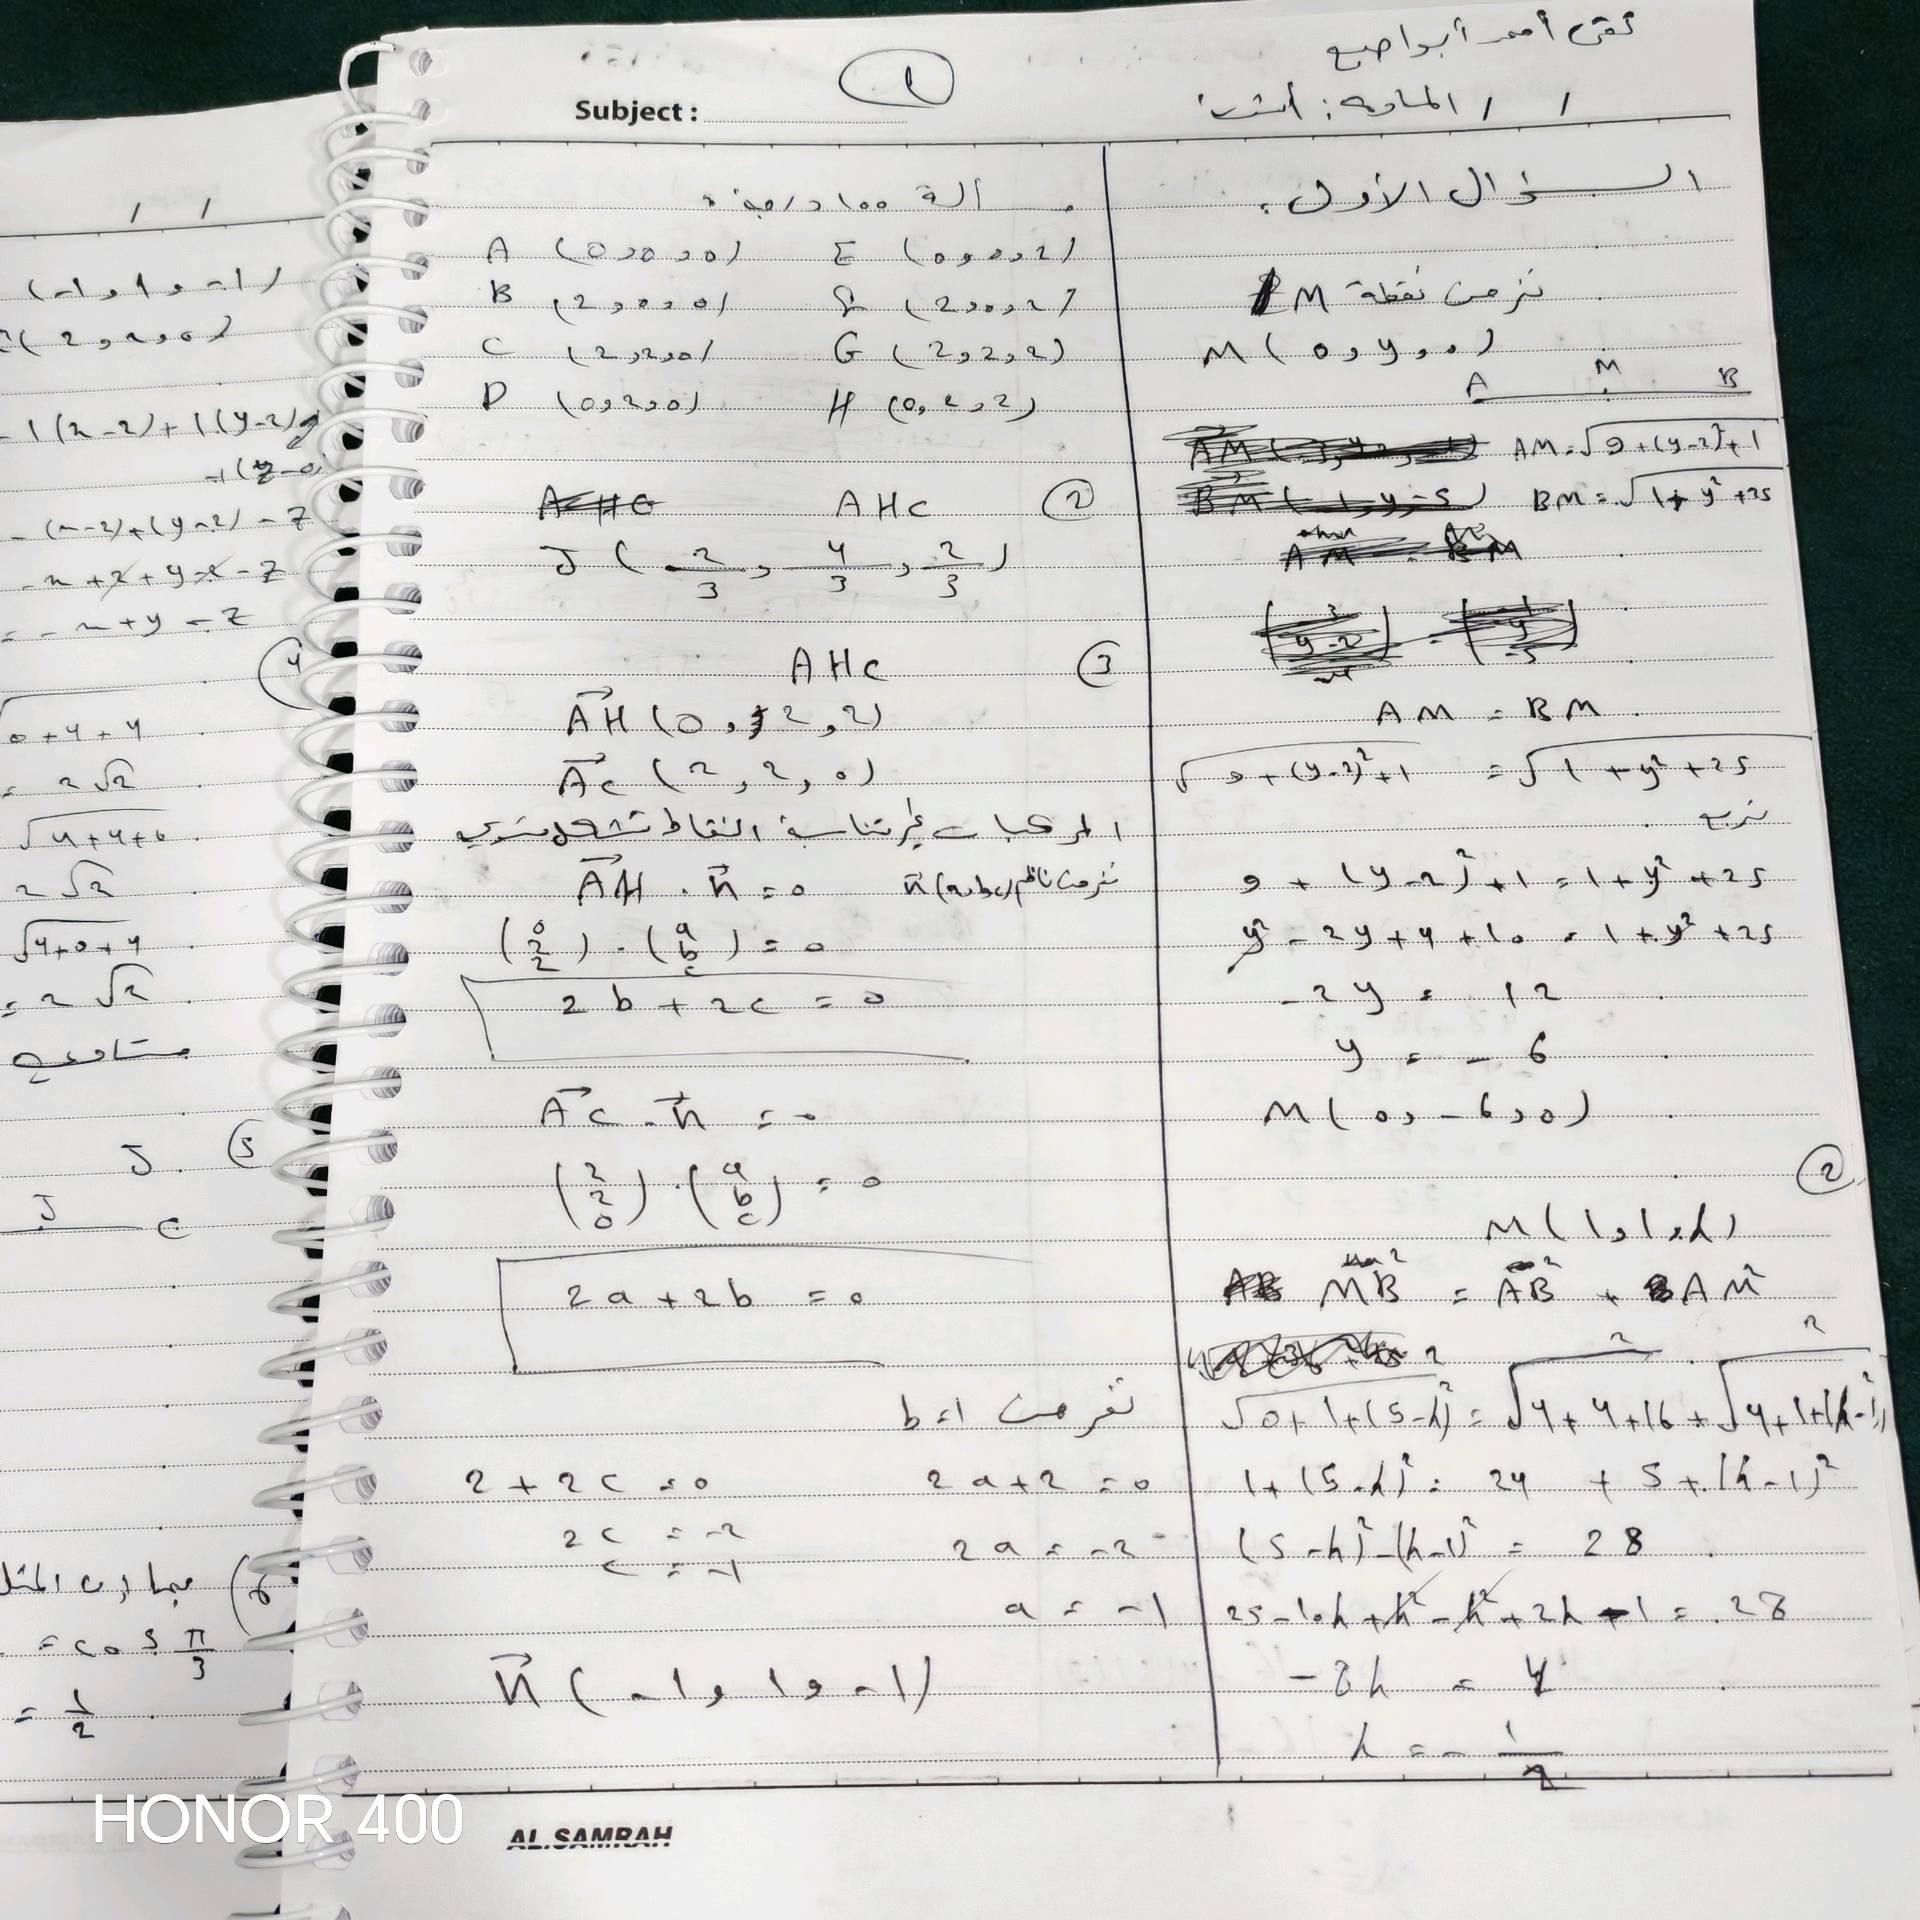 Subject :
1
/ / المادة :
السؤال الأول :
نفرض نقطة M
M ( 0 , y , 0 )
A M B
AM = √9 + (y-2)² + 1
BM = √1 + y² + 25
AM = BM
√9 + (y-2)² + 1 = √1 + y² + 25
نربع
9 + (y-2)² + 1 = 1 + y² + 25
y² - 2y + 4 + 10 = 1 + y² + 25
- 2y = 12
y = - 6
M ( 0 , - 6 , 0 )
2
M ( 1 , 1 , h )
MB² = AB² + AM²
√0 + 1 + (5-h)² ² = √4 + 4 + 16 ² + √4 + 1 + (h-1)² ²
1 + (5-h)² = 24 + 5 + (h-1)²
(5-h)² - (h-1)² = 28
25 - 10h + h² - h² + 2h - 1 = 28
- 8h = 4
h = - 1/2
مسألة 100 درجة :
A ( 0 , 0 , 0 ) E ( 0 , 0 , 2 )
B ( 2 , 0 , 0 ) ( 2 , 0 , 2 )
C ( 2 , 2 , 0 ) G ( 2 , 2 , 2 )
D ( 0 , 2 , 0 ) H ( 0 , 2 , 2 )
AHC 2
J ( 2/3 , 4/3 , 2/3 )
AHC 3
AH ( 0 , 2 , 2 )
AC ( 2 , 2 , 0 )
المركبات غير متناسبة النقاط تشكل مستوي
نفرض ناظم n (a,b,c) AH . n = 0
(0 2 2) . (a b c) = 0
2b + 2c = 0
AC . n = 0
(2 2 0) . (a b c) = 0
2a + 2b = 0
نفرض b = 1
2 + 2c = 0 2a + 2 = 0
2c = -2 2a = -2
c = -1 a = -1
n ( -1 , 1 , -1 )
/ /
( -1 , 1 , -1 )
( 2 , 2 , 0 )
-1 (x-2) + 1 (y-2)
-1 (z-0)
- (x-2) + (y-2) - z
- x + 2 + y - 2 - z
= - x + y - z
4
0 + 4 + 4
= 2√2
√4 + 4 + 0
2√2
√4 + 0 + 4
= 2√2
5 J
J C
6
= cos π/3
= 1/2
AL.SAMRAH
HONOR 400